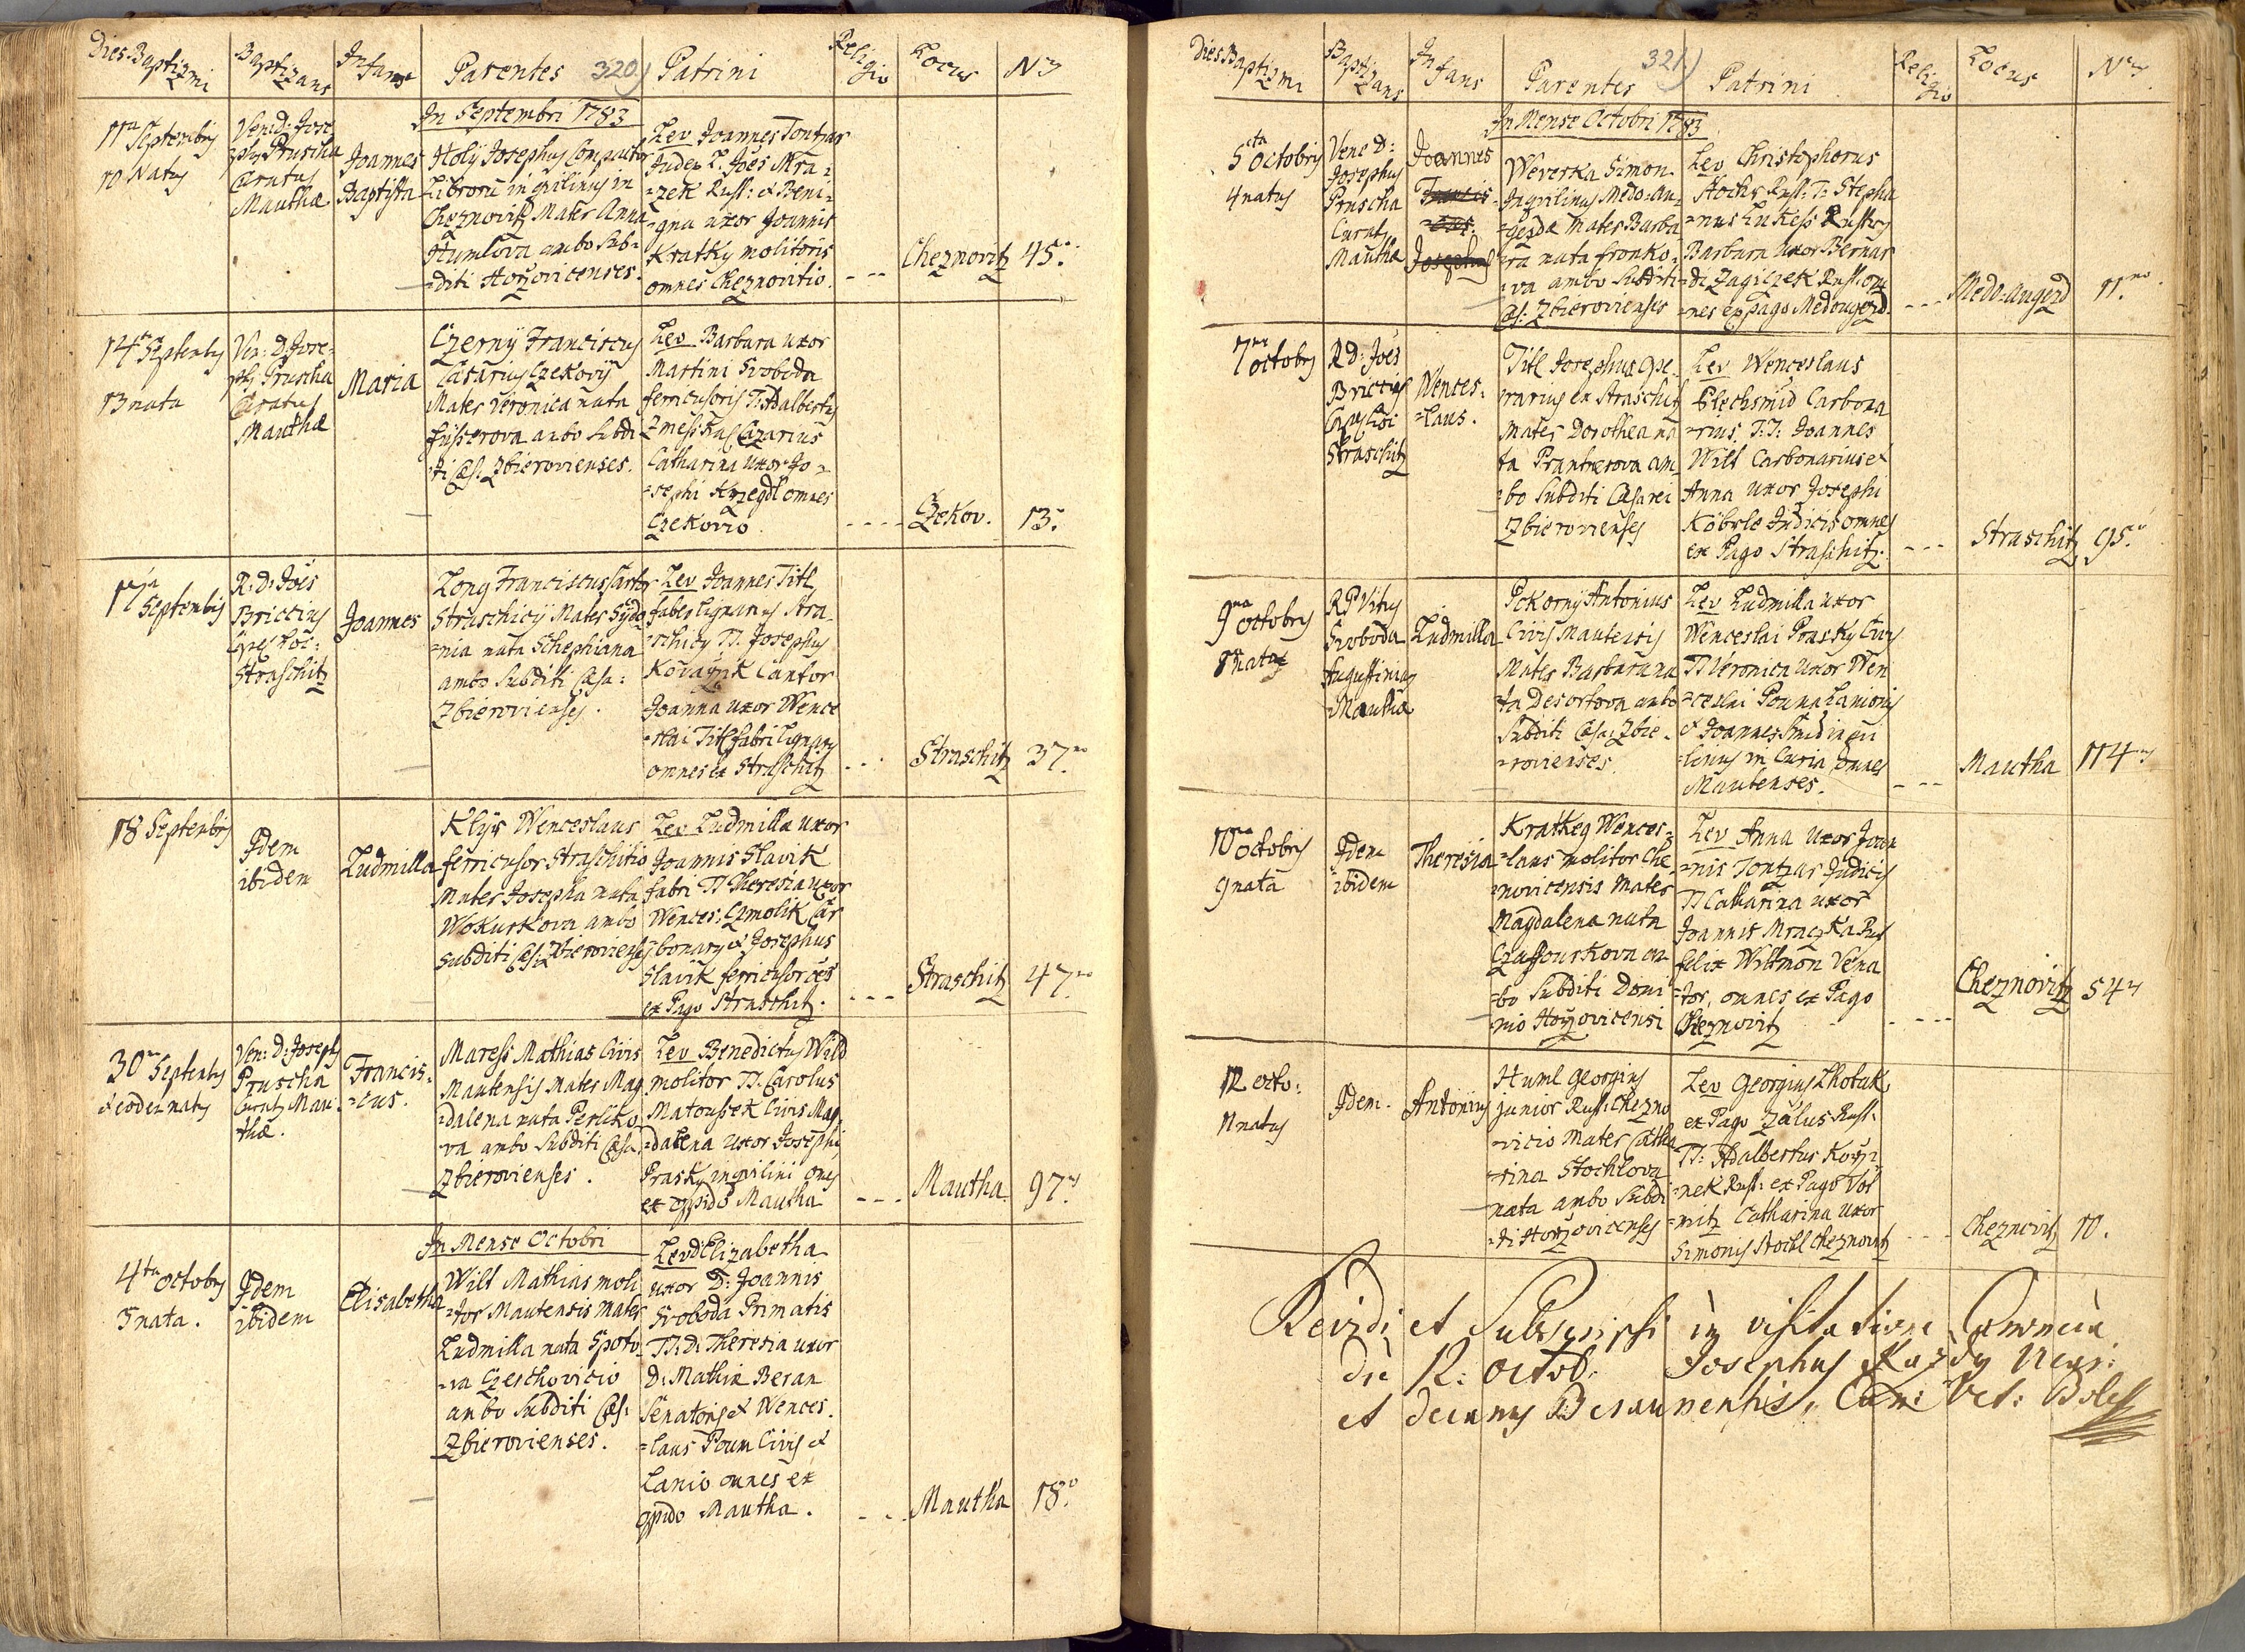 Dies Baptizmi Baptizans Infans Parentes 320) Patrini Religio Locus Nr
In Septembri 1783
11ma Septembris
10 Natus
Ven: d: Jose
phy Pruscha
Curatus
Mauthæ
Joannes
Baptista
Holÿ Josephus Compactor
Librorū inquilinus in
Cheznovitz Mater Anna
Humlova ambo Sub=
=diti Horzovicenses.
Lev Joannes Tontzar
Judex T. Joes Mra=
=zek Rust: & Beni=
=gna uxor Joannis
Kratky molitoris
omnes Cheznovitio.
Cheznovitz 45.
14 Septembris
13 nata
Ven: D. Jose=
phy Pruscha
Curatus
Mauthæ
Maria
Czernÿ Franciscus
Casarius Czekovÿ
Mater Veronica nata
ambo Subdi
=ti Cæs: Zbierovienses.
Lev Barbara uxor
Martini Svoboda
ferricusoris T: Adalbertus
Catharina uxor Jo=
=sephi Krzegdl omnes
Czekovio.
Czekov. 13.
17ma Septembris
R: d: Joes
Briccius
Straschitz
Joannes
Long Franciscus Sartor
Straschicÿ Mater Sydo
=nia nata Schephiana
ambo Subditi Cæsa:
Zbierovienses.
Lev Joannes Titl
faber lignarius Stra
=schicÿ TT. Josephus
Kovarzik Cantor
Joanna uxor Wence
=slai Titl fabri lignarÿ
omnes ex Straschitz
Straschitz 37.
18 Septembris
Idem
ibidem
Ludmilla
Klÿr Wenceslaus
ferricusor Straschitio
Mater Josepha nata
Wokurkova ambo
subditi Cæs: Zbierovienses
Lev Ludmilla uxor
Joannis Slavik
fabri TT Theresia uxor
Wences: Czmolik Car
bonarÿ & Josephus
Slavik ferricusor
ex Pago Straschitz.
Straschitz 47.
30 Septembris
& eodem natus
Ven: D: Josephs
Pruscha
Curatus Mau
thæ.
Francis=
=cus.
Maress Mathias Civis
Mautensis Mater Mag
=dalena nata Perliko
va ambo Subditi Cæsa:
Zbierovienses.
Lev Benedictus Wild
molitor TT. Carolus
Matoussek Civis Mag
=dalena uxor Josephi
Prasky inquilini
ex oppido Mautha
Mautha 97.
In Mense Octobri
4ta octobris
3 nata.
Idem
ibidem
Elisabetha
Wilt Mathias moli
=tor Mautensis Mater
Ludmilla nata Spoto
=va Czeschovicio
ambo Subditi Cæs:
Zbierovienses.
Lev d Elizabetha
uxor D: Joannis
Svoboda Primatis
TT: D: Theresia uxor
D: Mathiæ Beran
Senatoris & Wences.
=laus Poum Civis &
Lanio omnes ex
oppido Mautha.
Mautha 18.
Dies Baptizmi Baptizans Infans Parentes 321) Patrini Religio Locus Nr
In Mense Octobri 1783
5ta Octobris
4 natus
Vene D:
Josephus
Pruscha
Curat,
Mauthæ
Joannes
Francis
=cus.
Josephus
Weverka Simon
Inquilinus Medo-au
=gezdæ Mater Barba
=ra nata fronko=
=va ambo Subditi
Cæs: Zbierovienses
Lev Christophorus
Hochs Rust: T: Stepha
=nus Lukess Rusticus
Barbara uxor Bernar
=di Zagiczek Rust: om
=nes ex pago Medougezd.
Medo-augezd 11.
7ma octobris
R D: Joes
Briccius
Straschitz
Wences=
=laus.
Titl Josephus ope
=rarius ex Straschitz
Mater Dorothea na
ta Prantnerova am
=bo Subditi Cæsarei
Zbierovienses
Lev Wenceslaus
Blechsmid Carbona
=rius. T:T: Joannes
Wilt Carbonarius &
Anna uxor Josephi
Köbrle Judicis omnes
ex Pago Straschitz.
Straschitz 95.
9na octobris
8 nata
R P Vitus
Svoboda
Augustinian
Mautha
Ludmilla
Pokornÿ Antonius
Civis Mautensis
Mater Barbara na
=ta Desortova ambo
Subditi Cæsa: Zbie=
=rovienses.
Lev Ludmilla uxor
Wenceslai Prasky Civis
TT Veronica uxor Wen
=ceslai Pouma Lanionis
& Joannes Smid inqui
=linus in Curia omnes
Mautenses.
Mautha 114
10ma octobris
9 nata
Idem
ibidem
Theresia
Kratkeg Wences=
=laus molitor Che
=novicensis Mater
Magdalena nata
Czastourkova am
=bo Subditi Domi
=nio Horzovicensi
Lev Anna uxor Joan
=nis Tontzar Judicis
TT Catharina uxor
Joannis Mraczka Rus
felix Wittmon Vena
=tor, omnes ex Pago
Cheznovitz
Cheznovitz 54
12 octo:
11 natus
Idem.
Antonius
Huml Georgius
junior Rust: Chezno
=vicio Mater Catha
=rina Stochlova
nata ambo Subdi
=ti Horzovicenses
Lev Georgius Lhotak
ex Pago Zalus Rust:
TT: Adalbertus Korzi
=nek Rust: ex Pago Vol
=nitz Catharina uxor
Simonis Stochl Cheznovitz
Cheznovitz 10.
Revidi et Subscripsi in visitatione Canonica
die 12: octob: Josephus Kazdy Vicar:
et decanus Beraunensis, Can: Vet: Bolesl